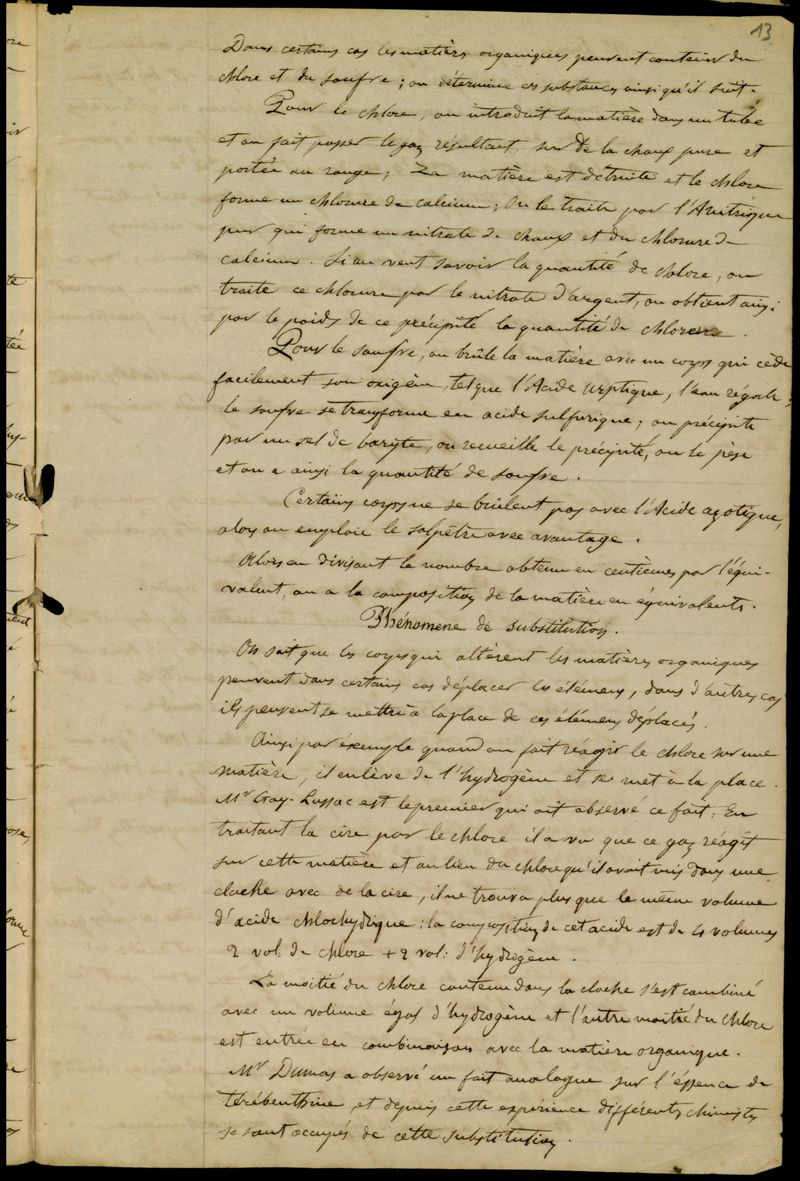 13
Dans certains cas les matières organiques peuvent contenir du
chlore et du soufre ; on détermine ces substances ainsi qu'il suit.
Pour le chlore, on introduit la matière dans un tube
et on fait passer le gaz résultant sur de la chaux pure et
portée au rouge ; La matière est détruite et le chlore
forme un chlorure de calcium ; On le traite par l'A nitrique
pur qui forme un nitrate de chaux et du chlorure de
calcium. Si on veut savoir la quantité de chlore, on
traite ce chlorure par le nitrate d'argent, on obtient ainsi
par le poids de ce précipité la quantité de chlore.
Pour le soufre, on brûle la matière avec un corps qui cède
facilement son oxigèn, tel que l'Acide azotique, l'eau régale ;
le soufre se transforme en acide sulfurique ; on précipite
par un sel de baryte, on recueille le précipité, on le pèse
et on a ainsi la quantité de soufre.
Certains corps ne se brûlent pas avec l'Acide azotique,
alors on emploie le salpêtre avec avantage.
Alors en divisant le nombre obtenu en centièmes par l'équi-
valent, on a la composition de la matière en équivalents.
Phénomene de substitution.
On sait que les corps qui altèrent les matières organiques
peuvent dans certains cas déplacer les élémens, dans d'autres cas
ils peuvent se mettre à la place de ces élémens déplacés.
Ainsi par éxemple quand on fait réagir le chlore sur une
matière, il enlève de l'hydrogène et se met à la place.
Mr Gay-Lussac est le premier qui ait observé ce fait : En
traitant la cire par le chlore il a vu que ce gaz réagit
sur cette matière et au lieu du chlore qu'il avait mis dans une
cloche avec de la cire, il ne trouva plus que le même volume
d'acide chlorhydrique : la composition de cet acide est de 4 volumes
2 vol. de chlore + 2 vol : d'hydrogène.
La moitié du chlore contenu dans la cloche s'est combiné
avec un volume égal d'hydrogène et l'autre moitié du chlore
est entrée en combinaison avec la matière organique.
Mr Dumas a observé un fait analogue sur l'éssence de
térébenthine, et depuis cette expérience différents chimistes
se sont occupés de cette substitution.